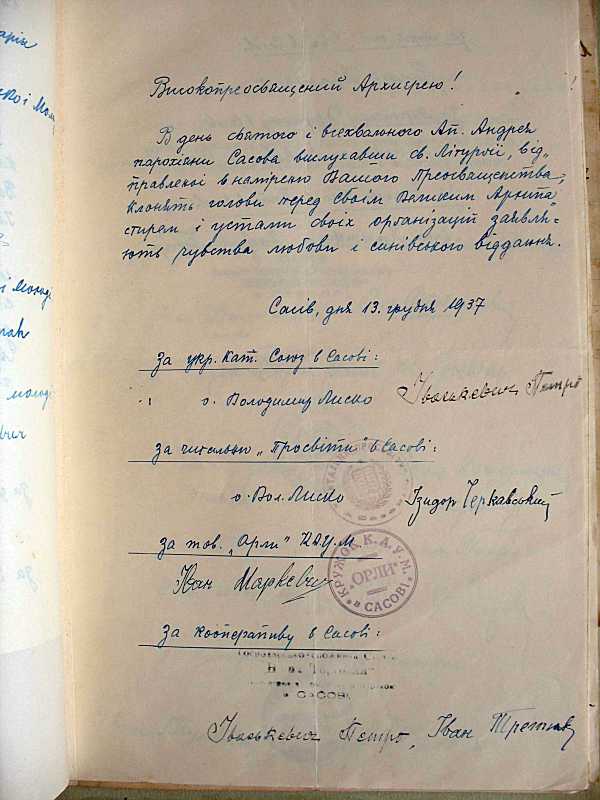 Високопреосвящений Архиєрею!
В день святого і всехвального Ап. Андрея
парохіяни Сасова вислухавши св. Літургії, від-
правленої в наміренню Вашого Преосвященства,
клонять голови перед своїм Великим Архипа-
стирем і устами своїх організацій заявля-
ють чувства любови і синівського віддання.
Сасів, дня 13. грудня 1937
За укр. Кат. Союз в Сасові:
о. Володимир Лиско Іваськевич Петро
За читальню „Просвіти" в Сасові:
о. Вол. Лиско Ізидор Черкавський
За тов. „Орли" К.А.У.М.
КРУЖОК К.А.У.М. "ОРЛИ" в САСОВІ
Іван Маркевич
За кооперативу в Сасові:
в САСОВІ
Іваськевич Петро, Іван